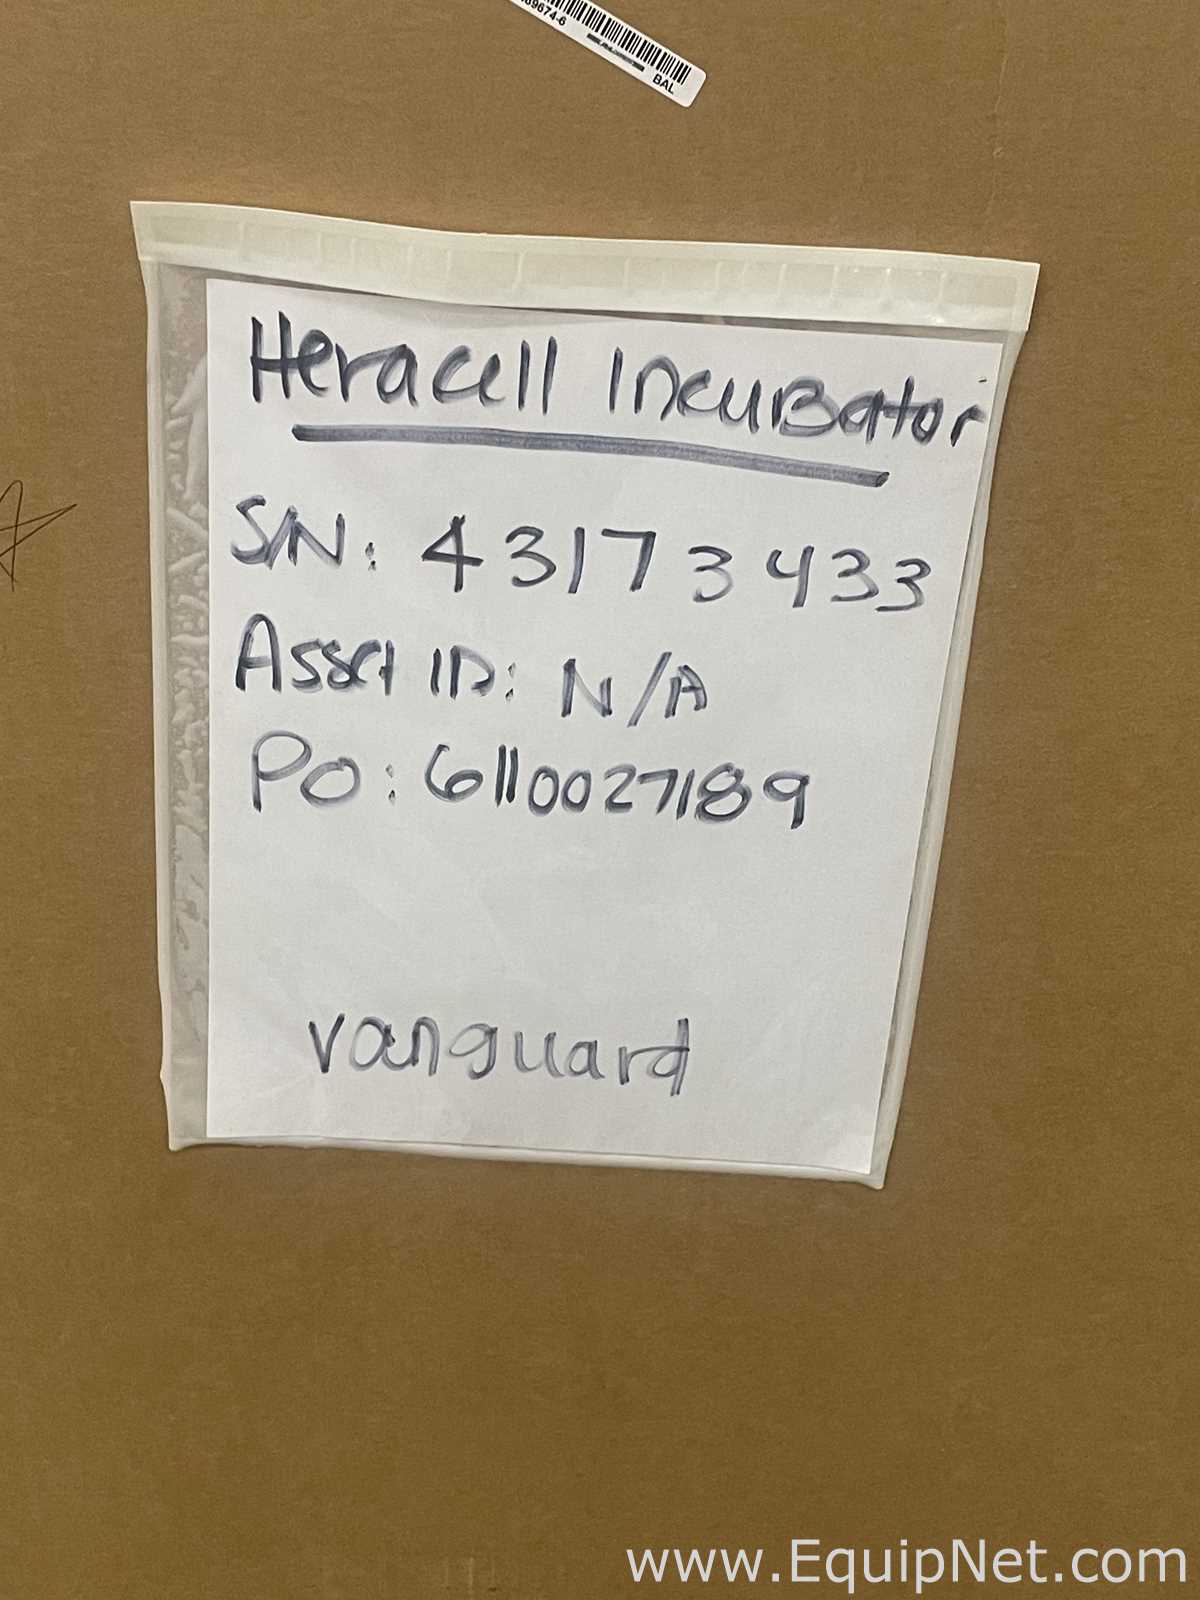 69674-6
BAL
Heracell IncuBator
S/N: 43173433
Asset ID: N/A
PO: 6110027189
vanguard
www.EquipNet.com